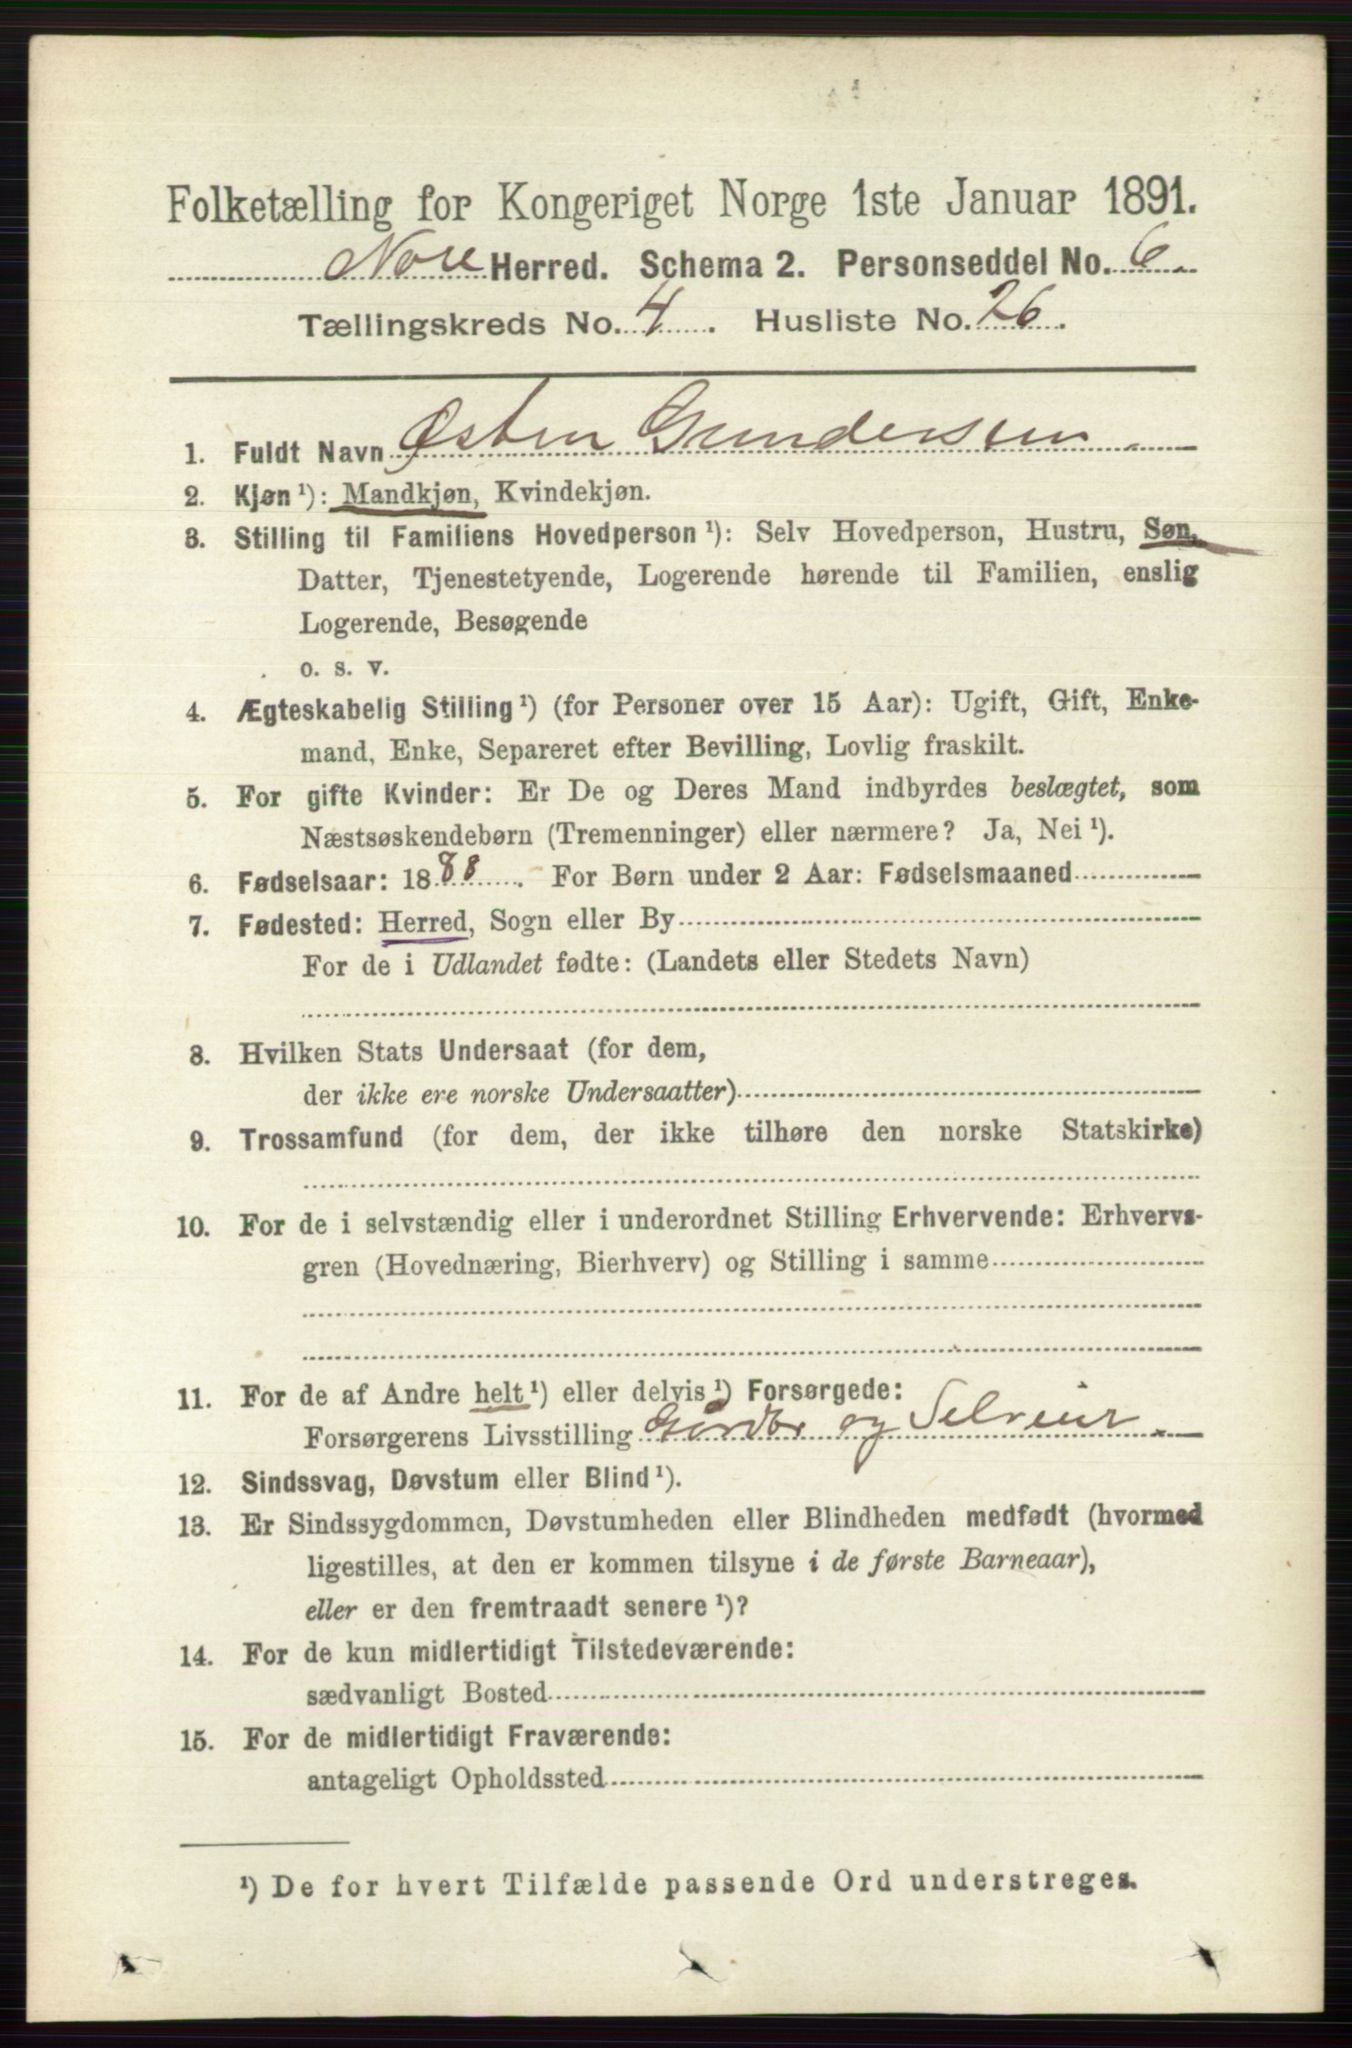 Folketælling for Kongeriget Norge 1ste Januar 1891.
Nore Herred. Schema 2. Personseddel No. 6.
Tællingskreds No. 4. Husliste No. 26.
1. Fuldt Navn Østen Gundersen
2. Kjøn ¹): Mandkjøn, Kvindekjøn.
3. Stilling til Familiens Hovedperson ¹): Selv Hovedperson, Hustru, Søn,
Datter, Tjenestetyende, Logerende hørende til Familien, enslig
Logerende, Besøgende
o. s. v.
4. Ægteskabelig Stilling ¹) (for Personer over 15 Aar): Ugift, Gift, Enke-
mand, Enke, Separeret efter Bevilling, Lovlig fraskilt.
5. For gifte Kvinder: Er De og Deres Mand indbyrdes beslægtet, som
Næstsøskendebørn (Tremenninger) eller nærmere? Ja, Nei ¹).
6. Fødselsaar: 1888. For Børn under 2 Aar: Fødselsmaaned
7. Fødested: Herred, Sogn eller By
For de i Udlandet fødte: (Landets eller Stedets Navn)
8. Hvilken Stats Undersaat (for dem,
der ikke ere norske Undersaatter)
9. Trossamfund (for dem, der ikke tilhøre den norske Statskirke)
10. For de i selvstændig eller i underordnet Stilling Erhvervende: Erhvervs-
gren (Hovednæring, Bierhverv) og Stilling i samme
11. For de af Andre helt ¹) eller delvis ¹) Forsørgede:
Forsørgerens Livsstilling Gårdbr og Selveier.
12. Sindssvag, Døvstum eller Blind ¹).
13. Er Sindssygdommen, Døvstumheden eller Blindheden medfødt (hvormed
ligestilles, at den er kommen tilsyne i de første Barneaar),
eller er den fremtraadt senere ¹)?
14. For de kun midlertidigt Tilstedeværende:
sædvanligt Bosted
15. For de midlertidigt Fraværende:
antageligt Opholdssted
¹) De for hvert Tilfælde passende Ord understreges.